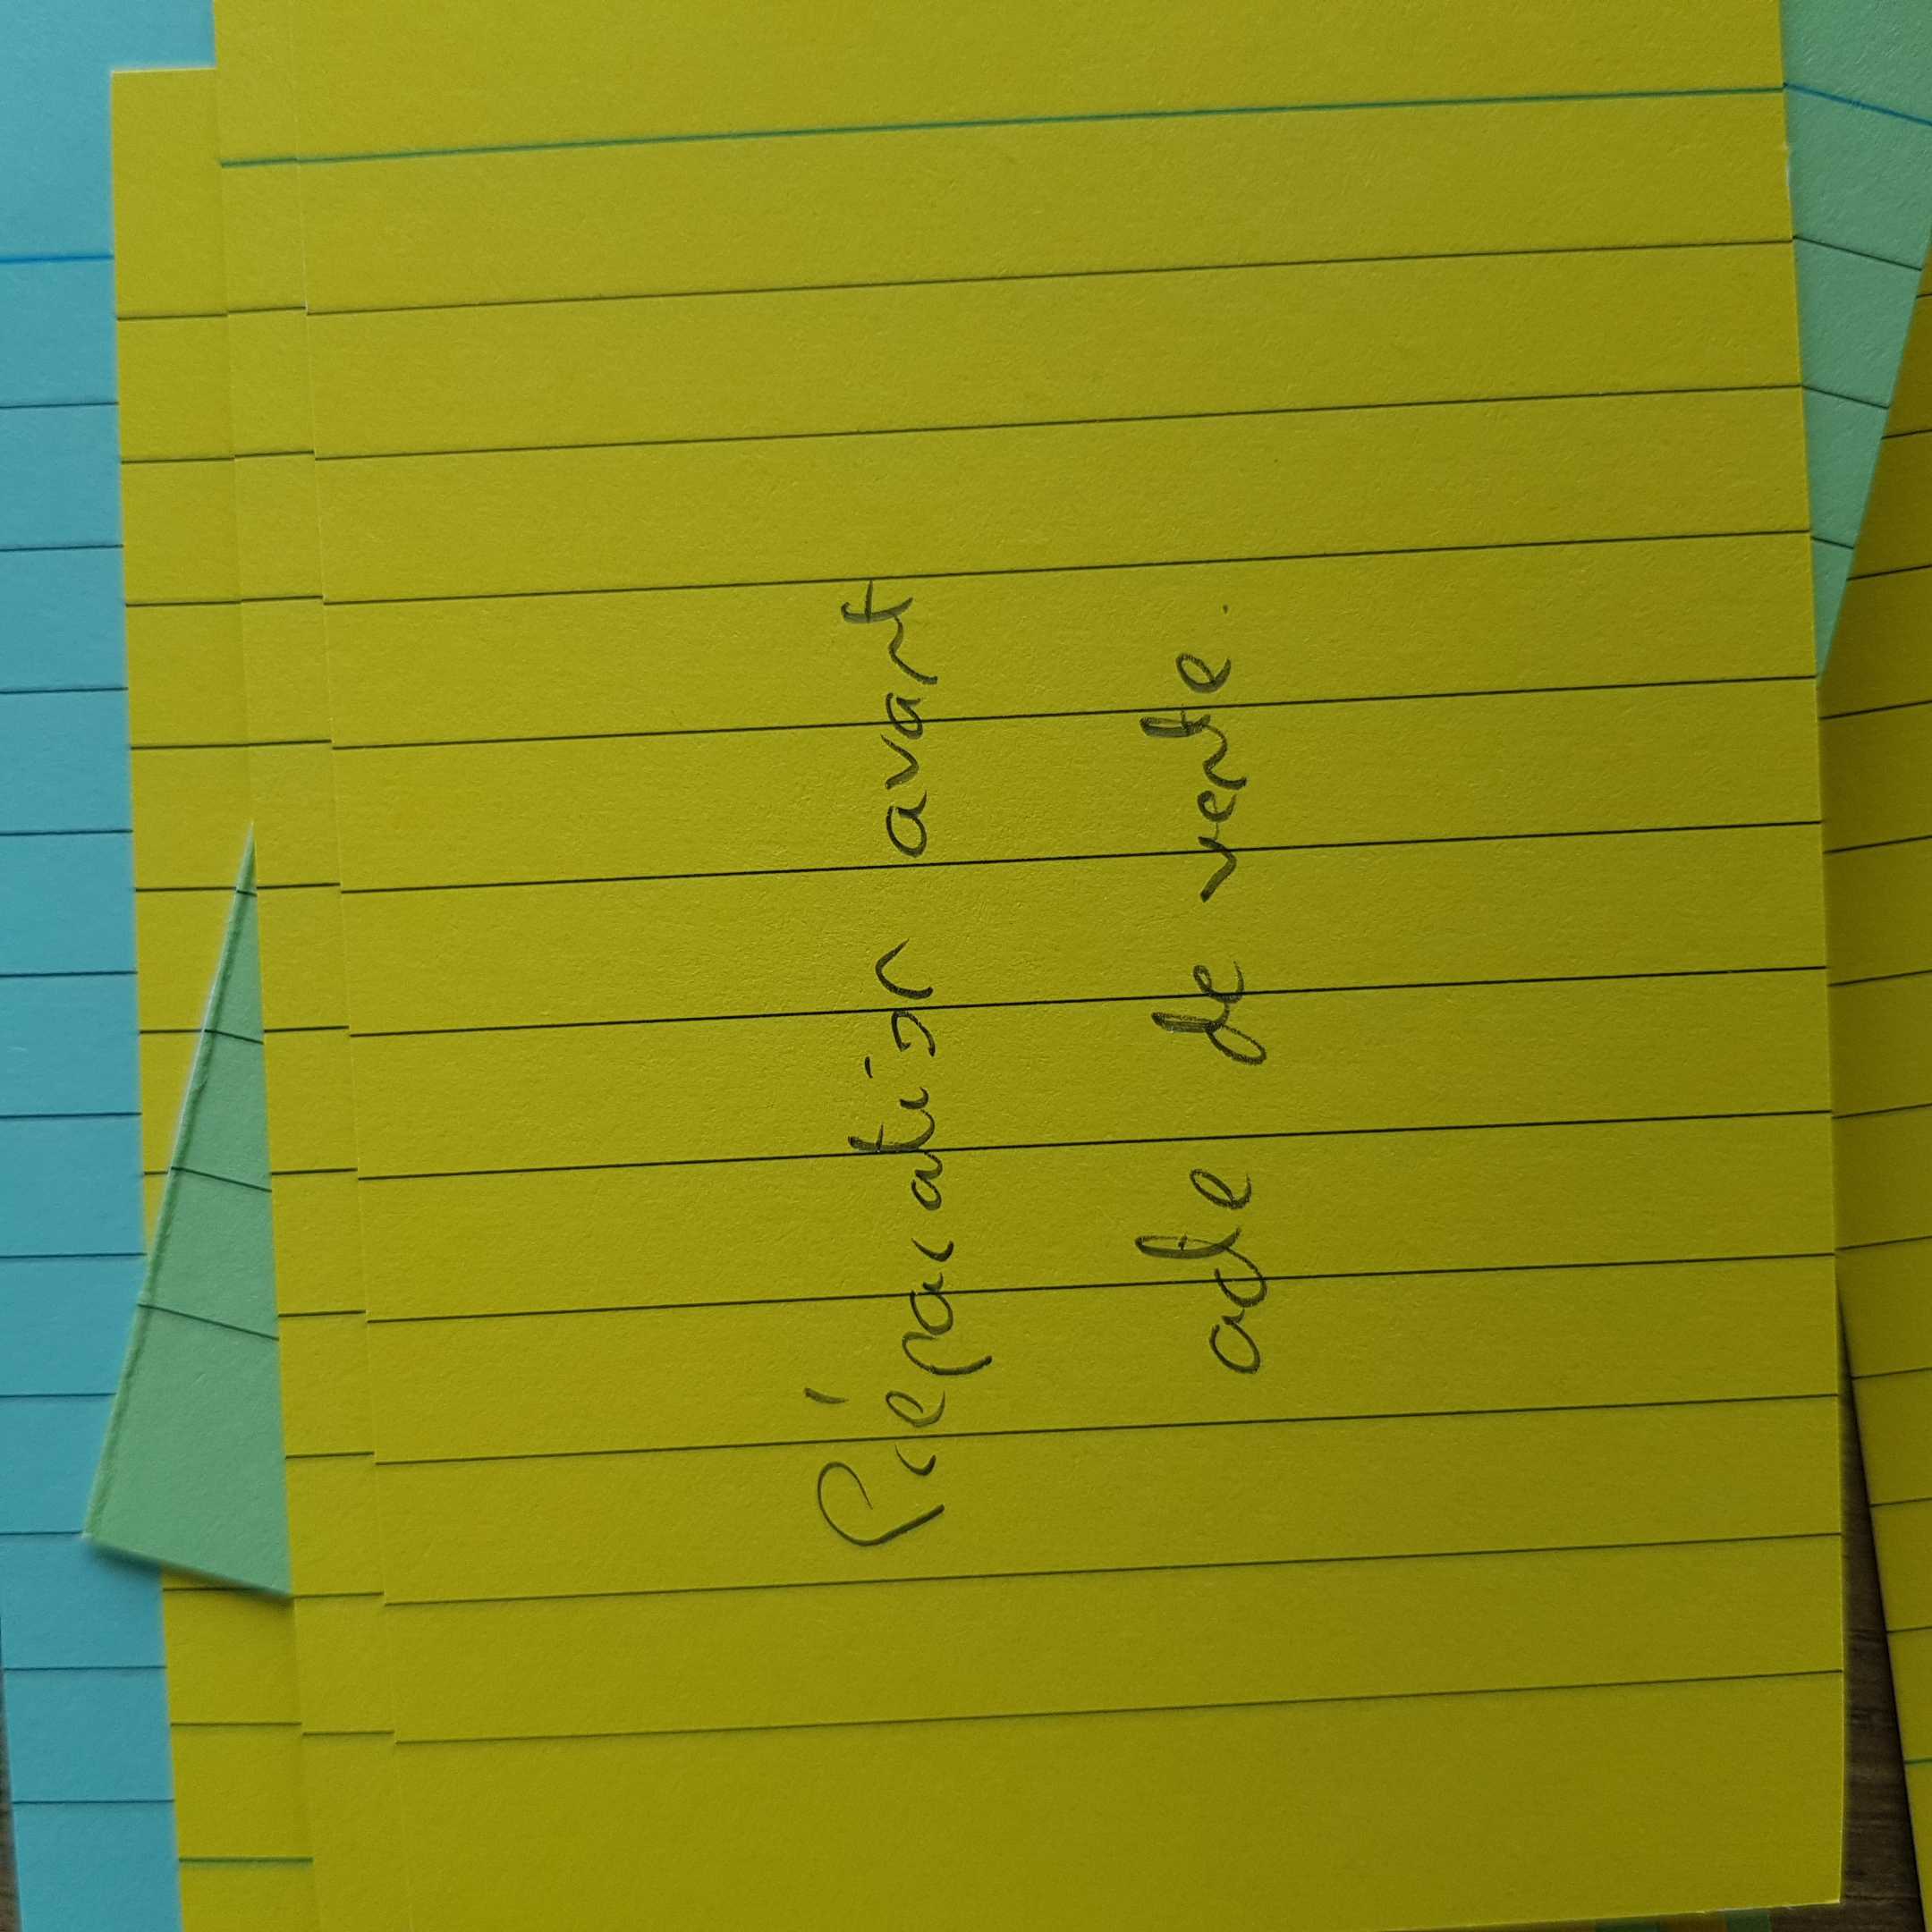 Préparation avant
acte de vente.